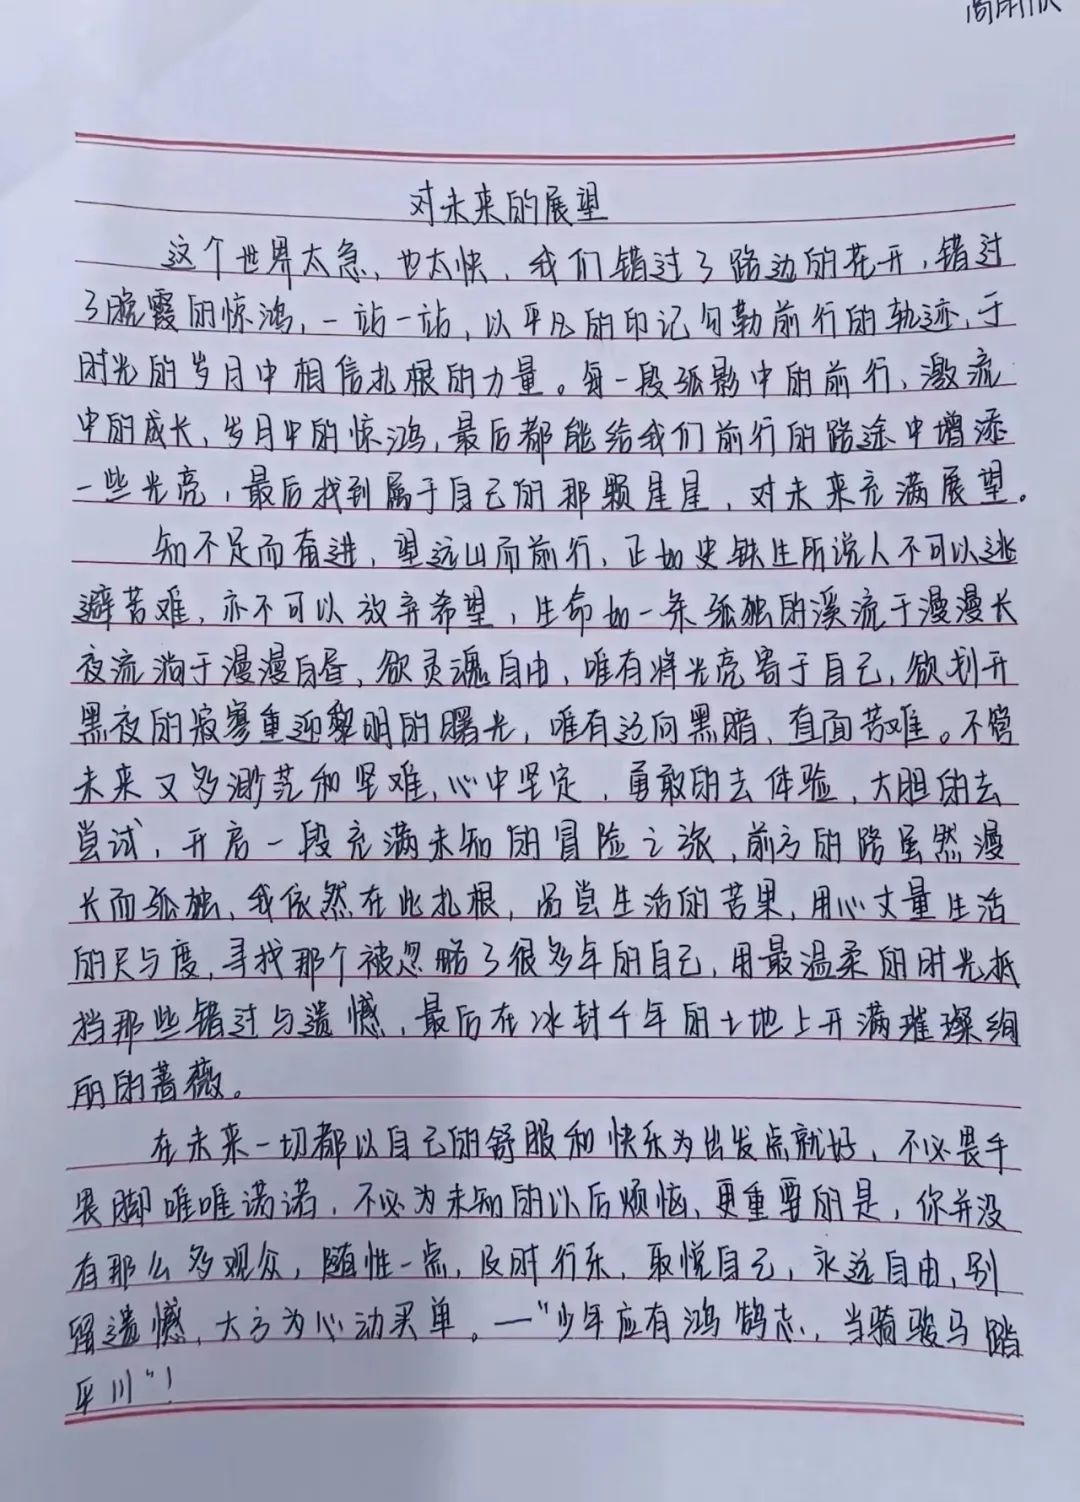 对未来的展望
这个世界太急，也太快，我们错过了路边的花开，错过
了晚霞的惊鸿，一站一站，以平凡的印记勾勒前行的轨迹，于
时光的岁月中相信扎根的力量。每一段孤影中的前行，激流
中的成长，岁月中的惊鸿，最后都能给我们前行的路途中增添
一些光亮，最后找到属于自己的那颗星星，对未来充满展望。
知不足而奋进，望远山而前行，正如史铁生所说人不可以逃
避苦难，亦不可以放弃希望，生命如一条孤独的溪流于漫漫长
夜流淌于漫漫白昼，欲灵魂自由，唯有将光亮寄于自己，欲划开
黑夜的寂寥重迎黎明的曙光，唯有迈向黑暗，直面苦难。不管
未来又多渺茫和坚难，心中坚定，勇敢的去体验，大胆的去
尝试，开启一段充满未知的冒险之旅，前方的路虽然漫
长而孤独，我依然在此扎根，品尝生活的苦果，用心丈量生活
的尺与度，寻找那个被忽略了很多年的自己，用最温柔的时光抵
挡那些错过与遗憾，最后在冰封千年的土地上开满璀璨绚
丽的蔷薇。
在未来一切都以自己的舒服和快乐为出发点就好，不必畏手
畏脚唯唯诺诺，不必为未知的以后烦恼，更重要的是，你并没
有那么多观众，随性一点，及时行乐，取悦自己，永远自由，别
留遗憾，大方为心动买单。—“少年应有鸿鹄志，当骑骏马踏
平川”！